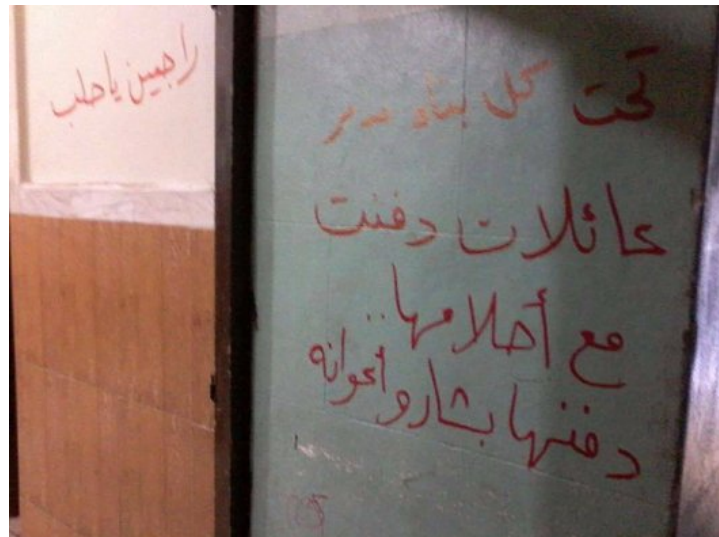 راجعين يا حلب
تحت كل بناء مدمر
عائلات دفنت
مع أحلامها..
دفنها بشار وأعوانه